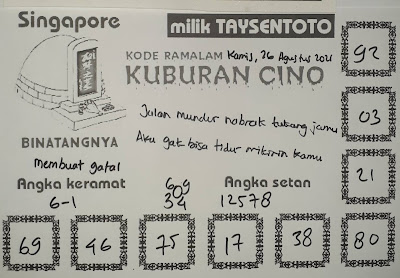 Singapore
milik TAYSENTOTO
KODE RAMALAM Kamis, 26 Agustus 2021
KUBURAN CINO
92
Jalan mundur nabrak tukang jamu
Aku gak bisa tidur mikirin kamu
03
BINATANGNYA
membuat gatal
21
Angka keramat
6-1
609
34
Angka setan
12578
69
46
75
17
38
80